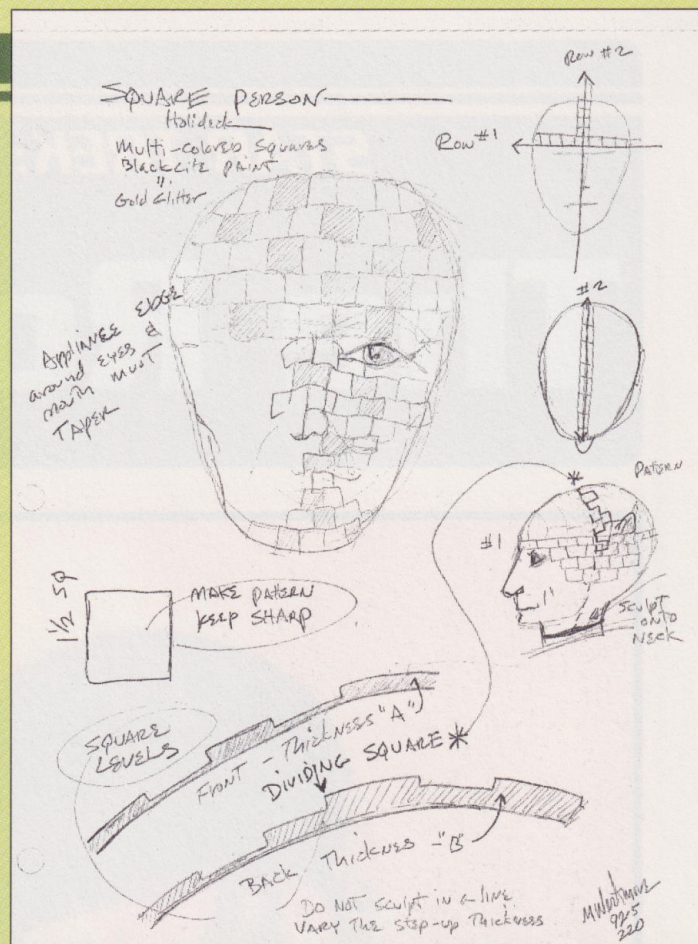 SQUARE PERSON
Holideck
Multi-colored Squares
Blacklite PAINT
"
Gold Glitter
Row #2
Row #1
#2
Appliance EDGE
around EYES &
mouth must
TAPER
PATERN
#1
Sculpt
onto
NECK
1 1/2 SQ
MAKE PATERN
KEEP SHARP
SQUARE
LEVELS
FRONT - THICKNESS "A"
DIVIDING SQUARE *
*
BACK THICKNES - "B"
DO NOT Sculpt in a line
VARY THE STEP-UP THICKNESS
925
220